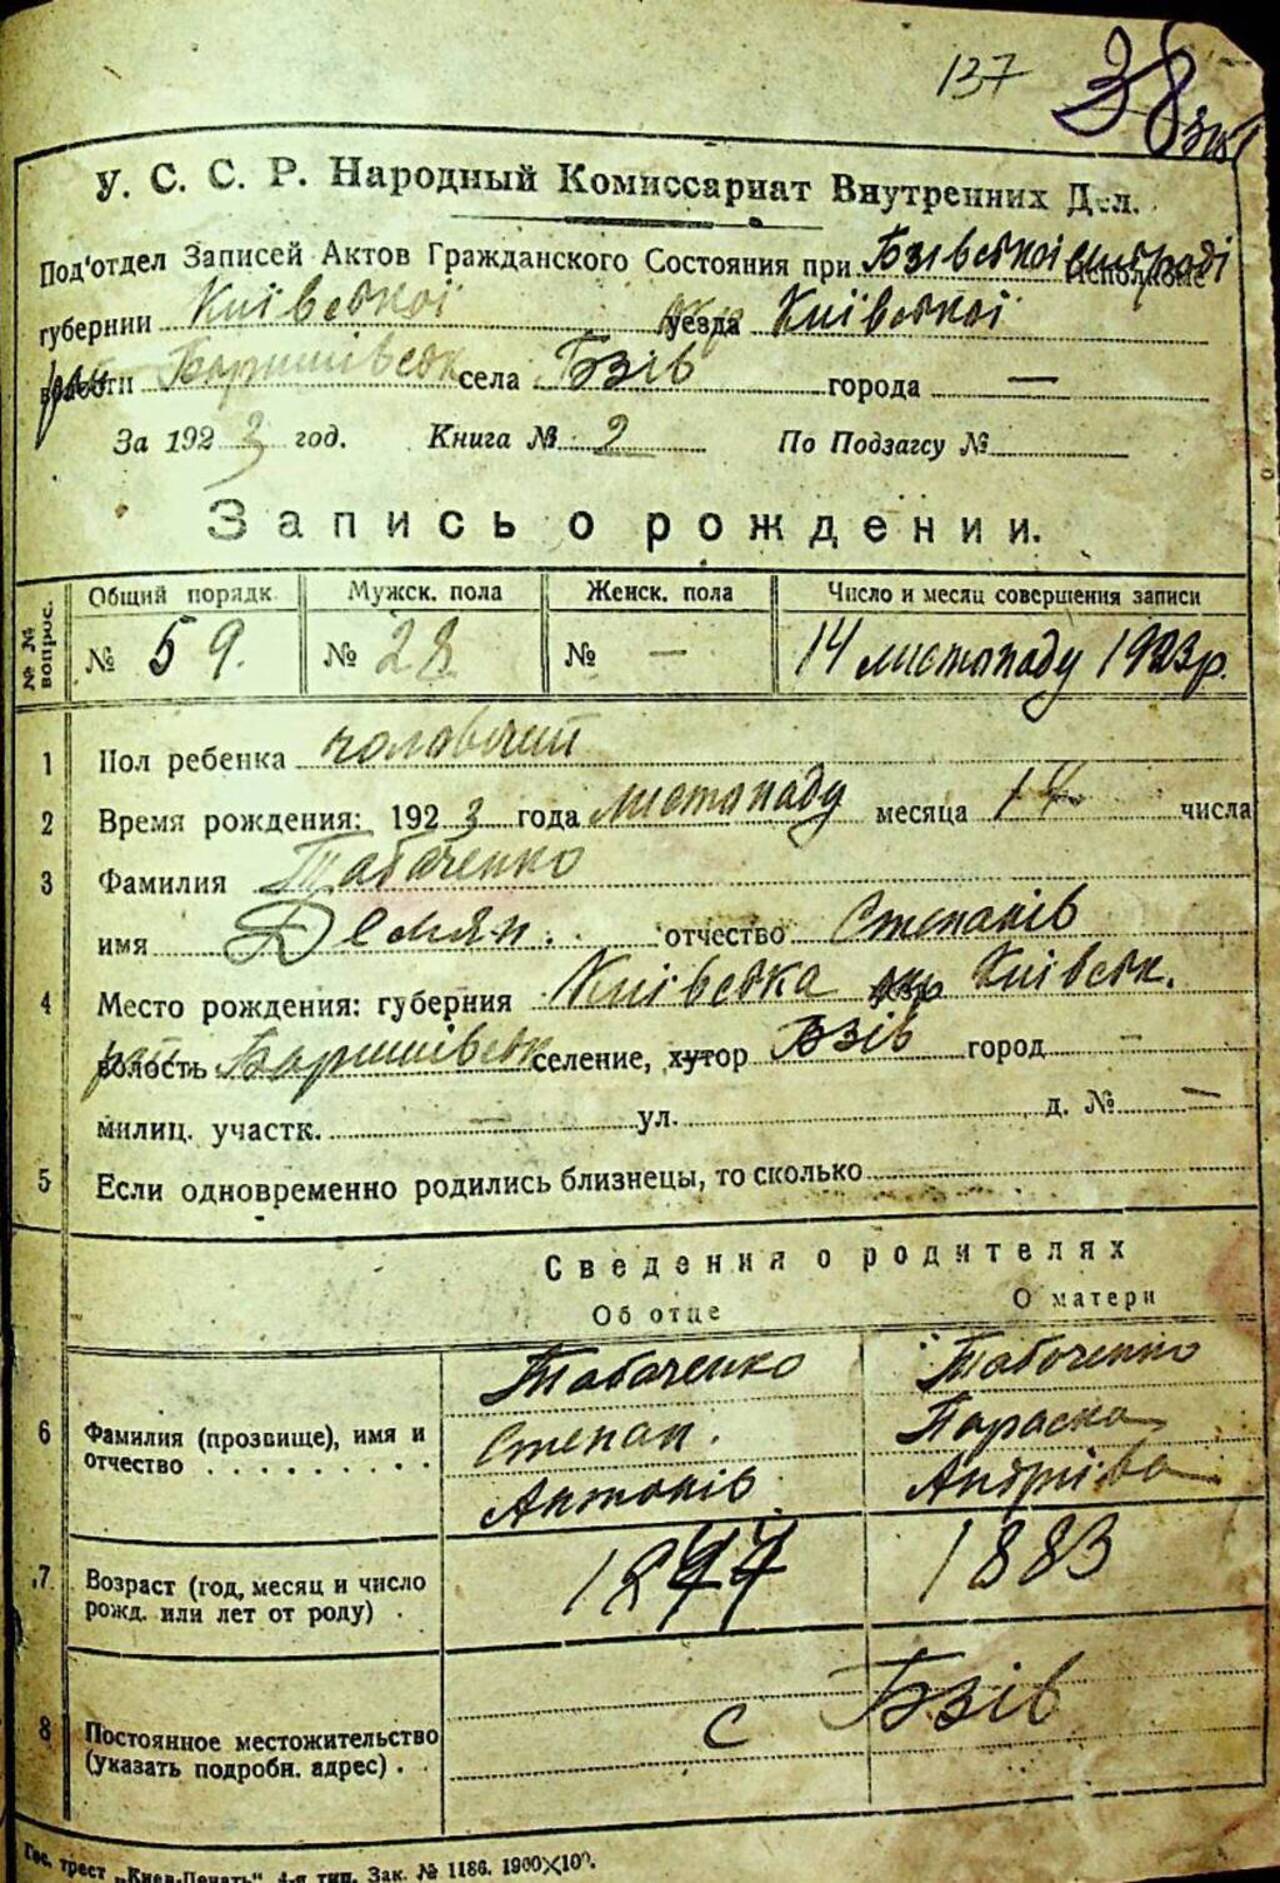 137 38
У. С. С. Р. Народный Комиссариат Внутренних Дел.
Под'отдел Записей Актов Гражданского Состояния при Бзівській Сільраді Исполкоме
губернии Київської окр уезда Київської
рай волости Баришівськ села Бзів города —
За 1923 год. Книга № 2 По Подзагсу №
Запись о рождении.
№ № вопрос. Общий порядк. Мужск. пола Женск. пола Число и месяц совершения записи
№ 59. № 28 № — 14 листопаду 1923 р.
1 Пол ребенка чоловічий
2 Время рождения: 1923 года листопаду месяца 14 числа
3 Фамилия Табаченко
имя Демян. отчество Степанів
4 Место рождения: губерния Київська окр Київськ.
рай волость Баришівськ селение, хутор Бзів город —
милиц. участк. — ул. д. № —
5 Если одновременно родились близнецы, то сколько
Сведения о родителях
Об отце О матери
Табаченко Табаченко
6 Фамилия (прозвище), имя и Степан. Параска
отчество Антонів Андріїва
7 Возраст (год, месяц и число 1883
рожд. или лет от роду)
8 Постоянное местожительство с Бзів
(указать подробн. адрес)
Гос. трест „Киев-Печать" 4-я тип. Зак. № 1186. 1900×100.